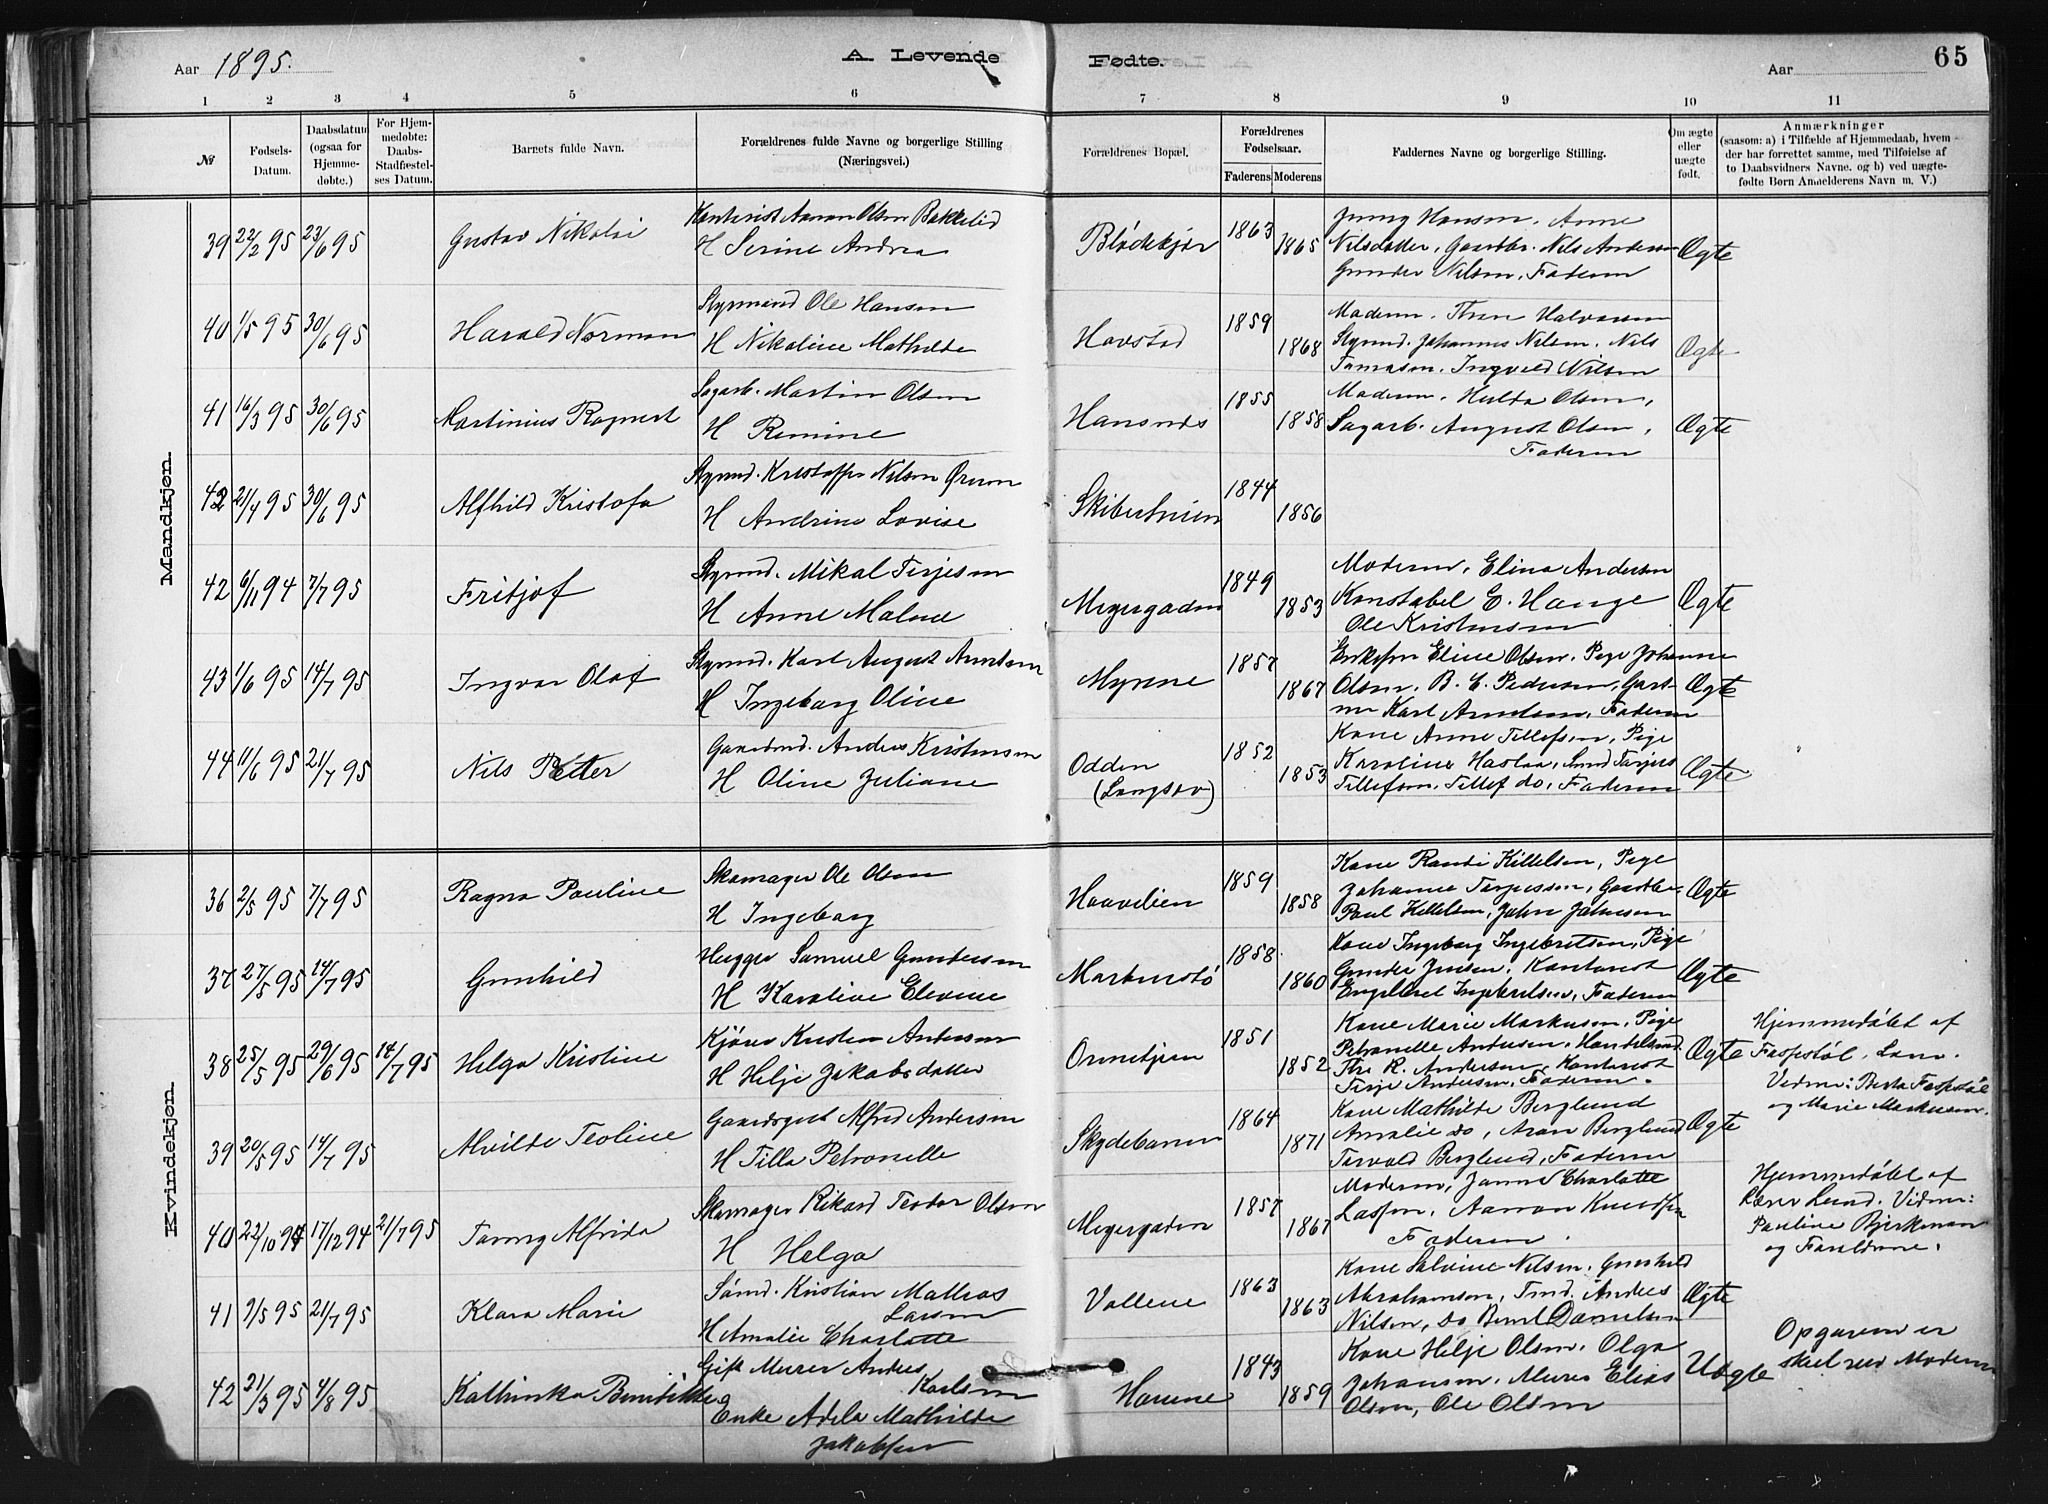 Aar 1895.
A. Levende Fødte.
Aar
65
1 2 3 4 5 6 7 8 9 10 11
No
Fødsels-Datum.
Daabsdatum (ogsaa for Hjemmedøbte.)
For Hjemmedøbte: Daabs-Stadfæstelses Datum.
Barnets fulde Navn.
Forældrenes fulde Navne og borgerlige Stilling (Næringsvei.)
Forældrenes Bopæl.
Forældrenes Fødselsaar.
Faderens Moderens
Faddernes Navne og borgerlige Stilling.
Om ægte eller uægte født.
Anmærkninger
(saasom: a) i Tilfælde af Hjemmedaab, hvem der har forrettet samme, med Tilføielse af to Daabsvidners Navne. og b) ved uægtefødte Børn Anmelderens Navn m. V.)
Mandkjøn.
39 22/2 95 23/6 95 Gustav Nikolai
Aanon Olsen Bakkelid
H Serine Andrea
Blødekjær 1863 1865
Jenny Hansen, Anne
Nilsdatter, Gaardbr. Nils Andersen
Gunder Nilsen, Faderen
Ægte
40 1/5 95 30/6 95 Harald Norman
Styrmand Ole Hansen
H Nikoline Mathilde
Havstad 1859 1868
Moderen, Thrine Halvorsen
Styrmd. Johannes Nilsen, Nils
Tomasen, Ingvald Nilsen
Ægte
41 16/3 95 30/6 95 Martinius Ragnert
Sagarb. Martin Olsen
H Romine
Hansnæs 1855 1858
Moderen, Hulda Olsen,
Sagarb. August Olsen,
Faderen
Ægte
42 21/4 95 30/6 95 Alfhild Kristofa
Styrmd. Kristoffer Nilsen
H Andrine Lovise
1844 1856
42 6/11 94 7/7 95 Fritjof
Styrmd. Mikal Terjesen
H Anne Malene
Meyergaden 1849 1853
Moderen, Elina Andersen
Konstabel E. Hauge
Ole Kristensen
Ægte
43 1/6 95 14/7 95 Ingvar Olaf
Styrmd. Karl August Arntsen
H Ingeborg Oline
Myrene 1857 1867
Enkefru Eline Olsen, Pige Johanne
Olsen, B. E. Pedersen, Gart-
ner Karl Arntsen, Faderen
Ægte
44 11/6 95 21/7 95 Nils Petter
Gaardmd. Anders Kristensen
H Oline Juliane
Odden
(Langsæv)
1852 1853
Kone Anne Tellefsen, Pige
Karoline Haslaa, Smed Terjus
Tellefsen, Tellef do, Faderen
Ægte
Kvindekjøn.
36 2/5 95 7/7 95 Ragna Pauline
Skomager Ole Olsen
H Ingeborg
Haavelien 1859 1858
Kone Randi Kittelsen, Pige
Johanne Terjesen, Gaardbr.
Paul Kittelsen, John Johnsen
Ægte
37 27/5 95 14/7 95 Gunhild
Hugger Samuel Gundersen
H Karoline Elevine
Markustø 1858 1860
Kone Ingeborg Ingebretsen, Pige
Gundee Jensen, Kontorist
Engelbret Ingebretsen, Faderen
Ægte
38 25/5 95 29/6 95 14/7 95 Helga Kristine
Kjører Kristen Andersen
H Helje Jakobsdatter
1851 1852
Kone Marie Markusen, Pige
Petronelle Andersen, Handelsmd.
Thr. R. Andersen, Kontorist
Terje Andersen, Faderen.
Ægte
Hjemmedøbt af
Faspstøl, Lærer.
Vidner: Berta Faspstøl
og Marie Markusen.
39 20/5 95 14/7 95 Alvilde Teoline
Alfred Andersen
H Tilla Petronelle
Skydebanen 1864 1871
Kone Mathilde Berglund
Amalie do, Aron Berglund
Torvald Berglund, Faderen
Ægte
40 22/10 94 17/12 94 21/7 95 Fanny Alfrida
Skomager Rikard Teodor Olsen
H Helga
Meyergaden 1857 1867
Moderen, Janne Charlotte
Lassen, Aanon Knudsen
Faderen.
Hjemmedøbt af
Lærer Lund. Vidner:
Pauline Bjerkman
og Forældrene.
41 9/5 95 21/7 95 Klara Marie
Sømd. Kristian Mathias
Larsen
H Amalie Charlotte
Vollene 1863 1863
Kone Salvine Nilsen, Gunhild
Abrahamsen, Tmd. Anders
Nilsen, do Bernt Danielsen
Ægte
42 21/3 95 4/8 95 Kathinka Benedikte
Gift Murer Anders
Karlsen
Enke Adela Mathilde
Jakobsen
Havene 1843 1859
Kone Helje Olsen, Olga
Johansen, Murer Elias
Olsen, Ole Olsen
Uægte
Opgaven er
skel ved Moderen